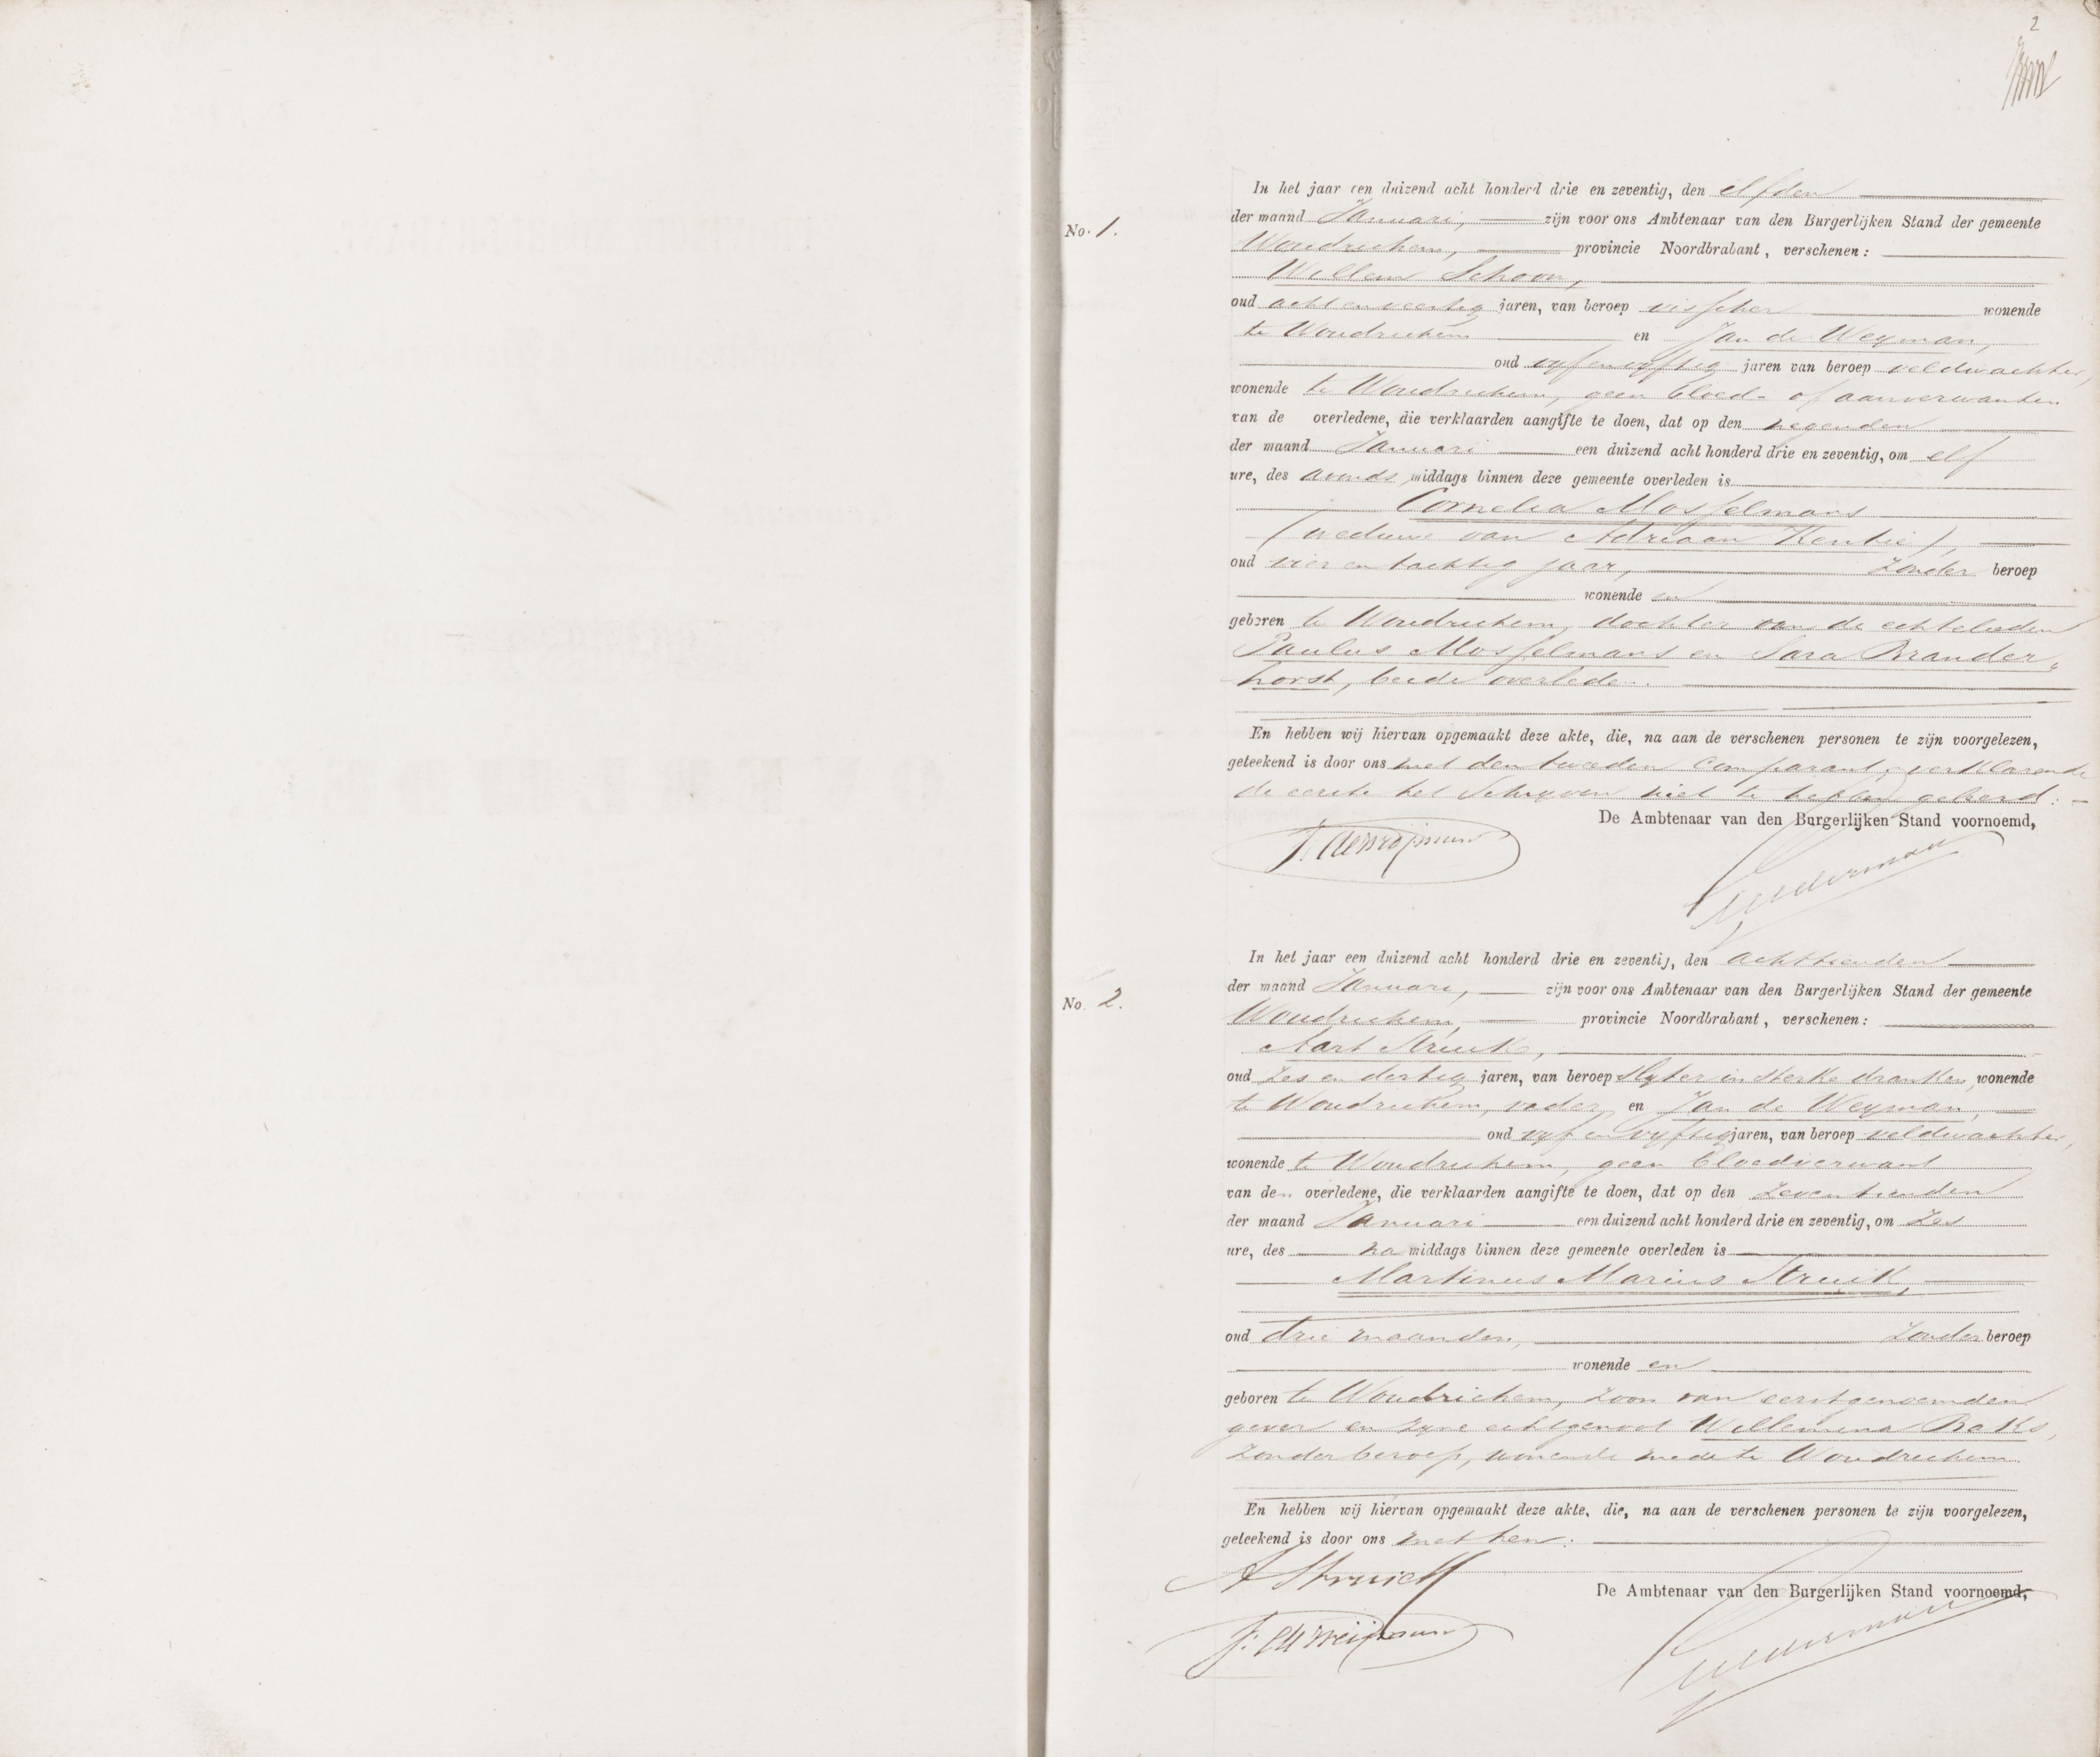 2
No. 1.
In het jaar een duizend acht honderd drie en zeventig, den elfden
der maand Januari, zijn voor ons Ambtenaar van den Burgerlijken Stand der gemeente
Woudrichem, provincie Noordbrabant, verschenen:
Willem Schoon,
oud achtenveertig jaren, van beroep visscher wonende
te Woudrichem en Jan de Weyman,
oud vyfenvyftig jaren van beroep veldwachter,
wonende te Woudrichem, geen bloed- of aanverwanten
van de overledene, die verklaarden aangifte te doen, dat op den negenden
der maand Januari een duizend acht honderd drie en zeventig, om elf
ure, des avonds middags binnen deze gemeente overleden is
Cornelia Mosselmans
(weduwe van Adriaan Kentie),
oud vier en tachtig jaar, zonder beroep
wonende en
geboren te Woudrichem, dochter van de echtelieden
Paulus Mosselmans en Sara Brander„
horst, beide overleden.
En hebben wij hiervan opgemaakt deze akte, die, na aan de verschenen personen te zijn voorgelezen,
geteekend is door ons met den tweeden Comparant, verklarende
de eerste het Schryven niet te hebben geleerd.
De Ambtenaar van den Burgerlijken Stand voornoemd,
No. 2.
In het jaar een duizend acht honderd drie en zeventig, den achttienden
der maand Januari, zijn voor ons Ambtenaar van den Burgerlijken Stand der gemeente
Woudrichem, provincie Noordbrabant, verschenen:
Aart Struik,
oud zes en dertig jaren, van beroep Slyter in sterke dranken, wonende
te Woudrichem, vader, en Jan de Weyman,
oud vyf en vyftig jaren, van beroep veldwachter,
wonende te Woudrichem, geen bloedverwant
van den overledene, die verklaarden aangifte te doen, dat op den zeventienden
der maand Januari een duizend acht honderd drie en zeventig, om zes
ure, des na middags binnen deze gemeente overleden is
Martinus Marinus Struik,
oud drie maanden, zonder beroep
wonende en
geboren te Woudrichem, zoon van eerstgenoemden
gever en zyne echtgenoot Willemina Baks,
zonder beroep, wonende mede te Woudrichem
En hebben wij hiervan opgemaakt deze akte, die, na aan de verschenen personen te zijn voorgelezen,
geteekend is door ons met hen.
A Struick
De Ambtenaar van den Burgerlijken Stand voornoemd,